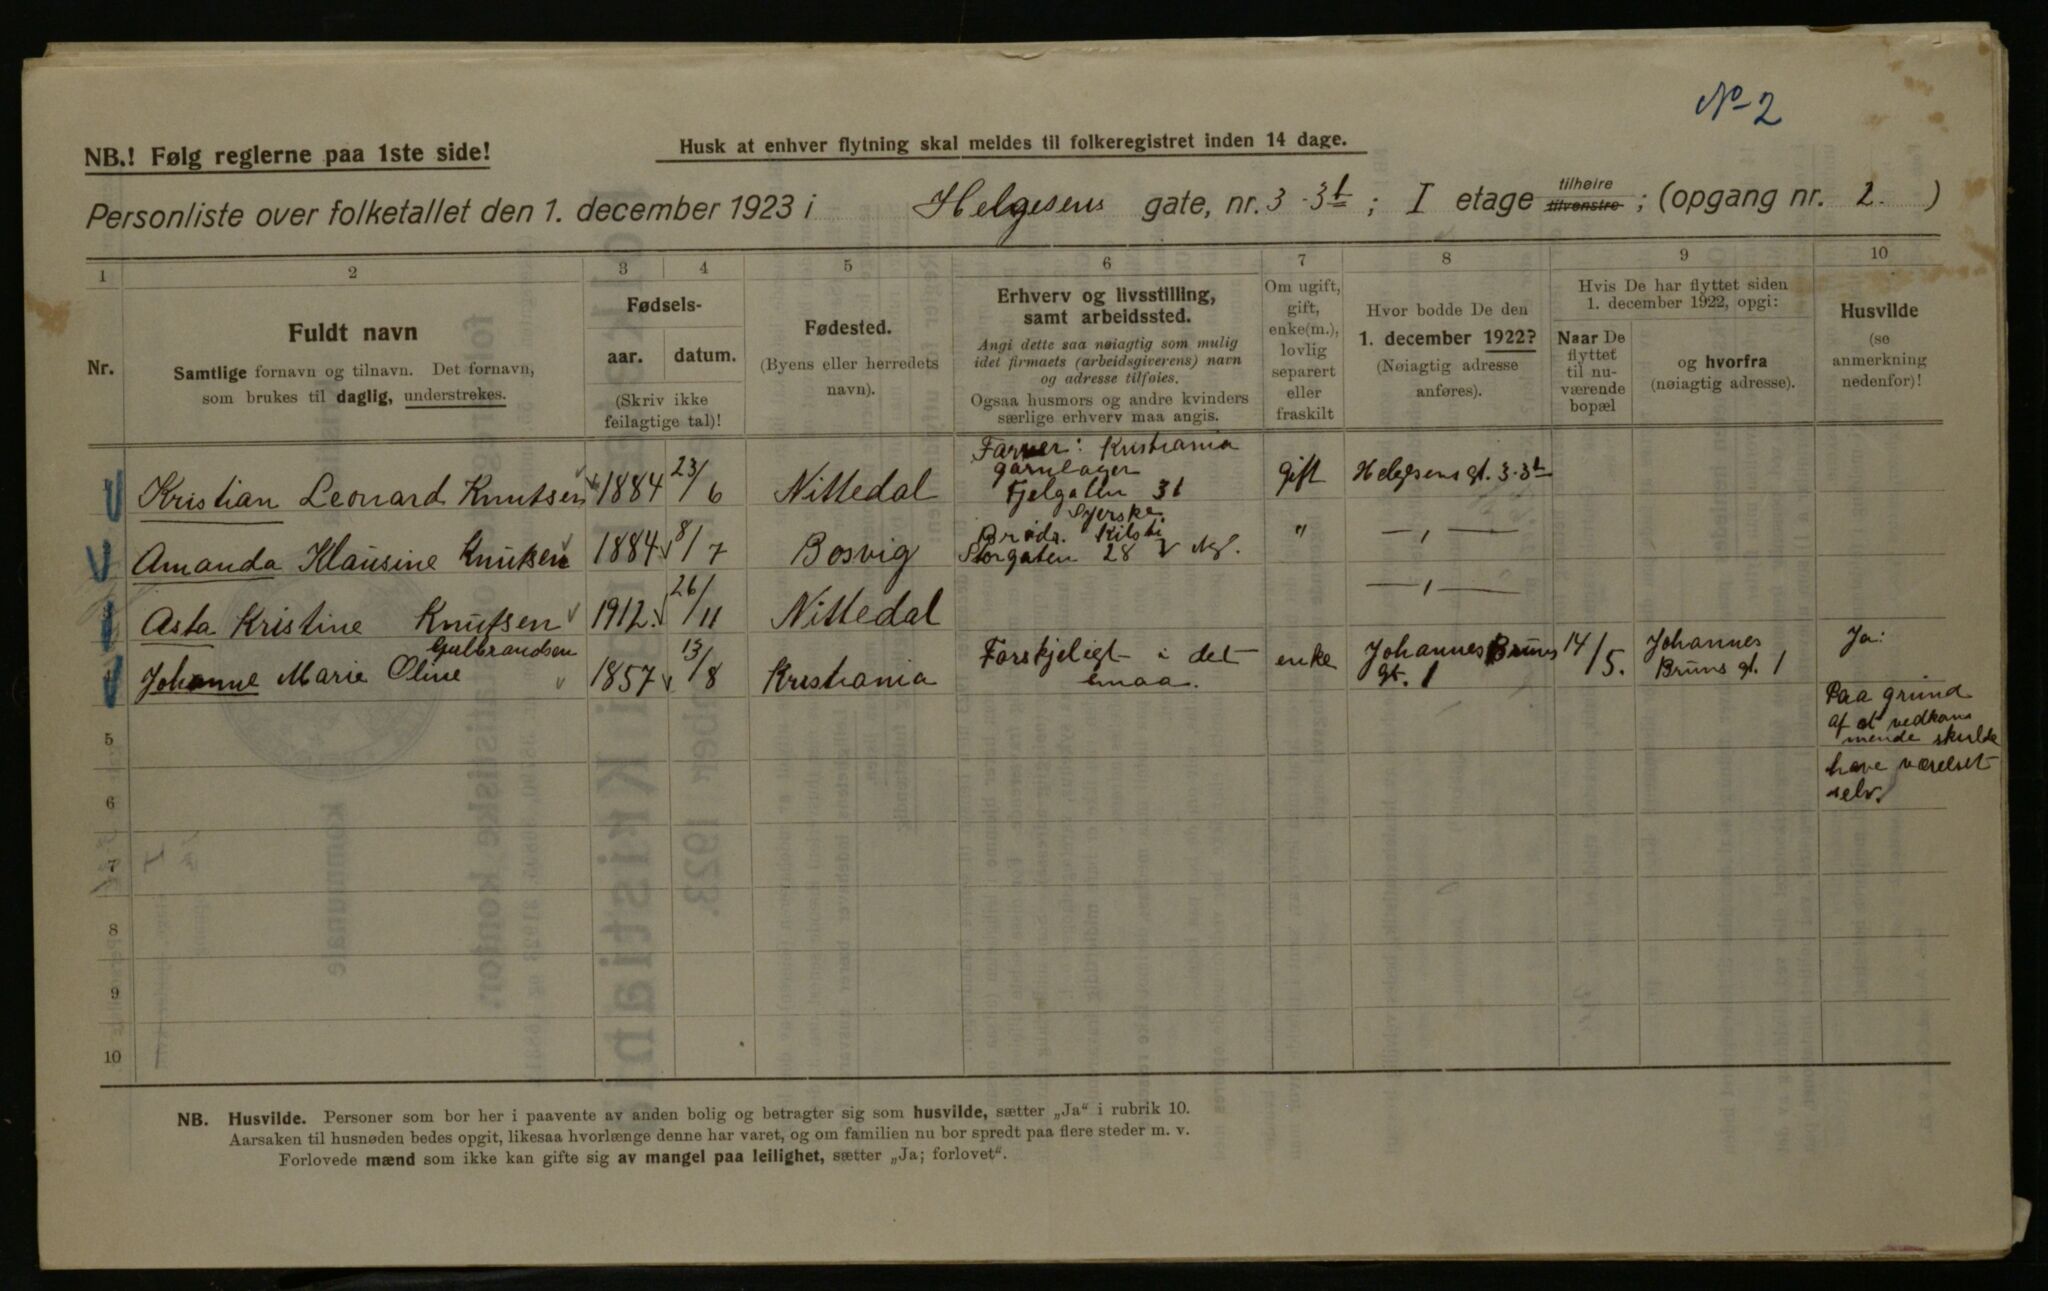 № 2
NB.! Følg reglerne paa 1ste side!
Husk at enhver flytning skal meldes til folkeregistret inden 14 dage.
Personliste over folketallet den 1. december 1923 i Helgesens gate, nr. 3 - 3 b; I etage tilhøire tilvenstre; (opgang nr. 2. )
1 2 3 4 5 6 7 8 9 10
Nr.
Fuldt navn
Samtlige fornavn og tilnavn. Det fornavn,
som brukes til daglig, understrekes.
Fødsels-
aar. datum.
(Skriv ikke
feilagtige tal)!
Fødested.
(Byens eller herredets
navn).
Erhverv og livsstilling,
samt arbeidssted.
Angi dette saa nøiagtig som mulig
idet firmaets (arbeidsgiverens) navn
og adresse tilføies.
Ogsaa husmors og andre kvinders
særlige erhverv maa angis.
Om ugift,
gift,
enke(m.),
lovlig
separert
eller
fraskilt
Hvor bodde De den
1. december 1922?
(Nøiagtig adresse
anføres).
Hvis De har flyttet siden
1. december 1922, opgi:
Naar De
flyttet
til nu-
værende
bopæl
og hvorfra
(nøiagtig adresse).
Husvilde
(se
anmerkning
nedenfor)!
Kristian Leonard Knutsen 1884 23/6 Nittedal Farver: Kristiania
garnlager
31 gift Helgesens gt. 3-3b
Amanda Klausine Knutsen 1884 8/7 Bosvig Syerske.
Brødr.
Storgaten 28 " —„—
Asta Kristine Knutsen 1912. 26/11 Nittedal —„—
Gulbrandsen
Johanne Marie Oline 1857 13/8 Kristiania Forskjeligt i det
smaa. enke Johannes Bruns
gt. 1 14/5. Johannes
Bruns gt. 1 Ja:
Paa grund
af at vedkom
mende skulde
have værelset
selv.
5
6
7
8
9
10
NB. Husvilde. Personer som bor her i paavente av anden bolig og betragter sig som husvilde, sætter „Ja“ i rubrik 10.
Aarsaken til husnøden bedes opgit, likesaa hvorlænge denne har varet, og om familien nu bor spredt paa flere steder m. v.
Forlovede mænd som ikke kan gifte sig av mangel paa leilighet, sætter „Ja; forlovet“.